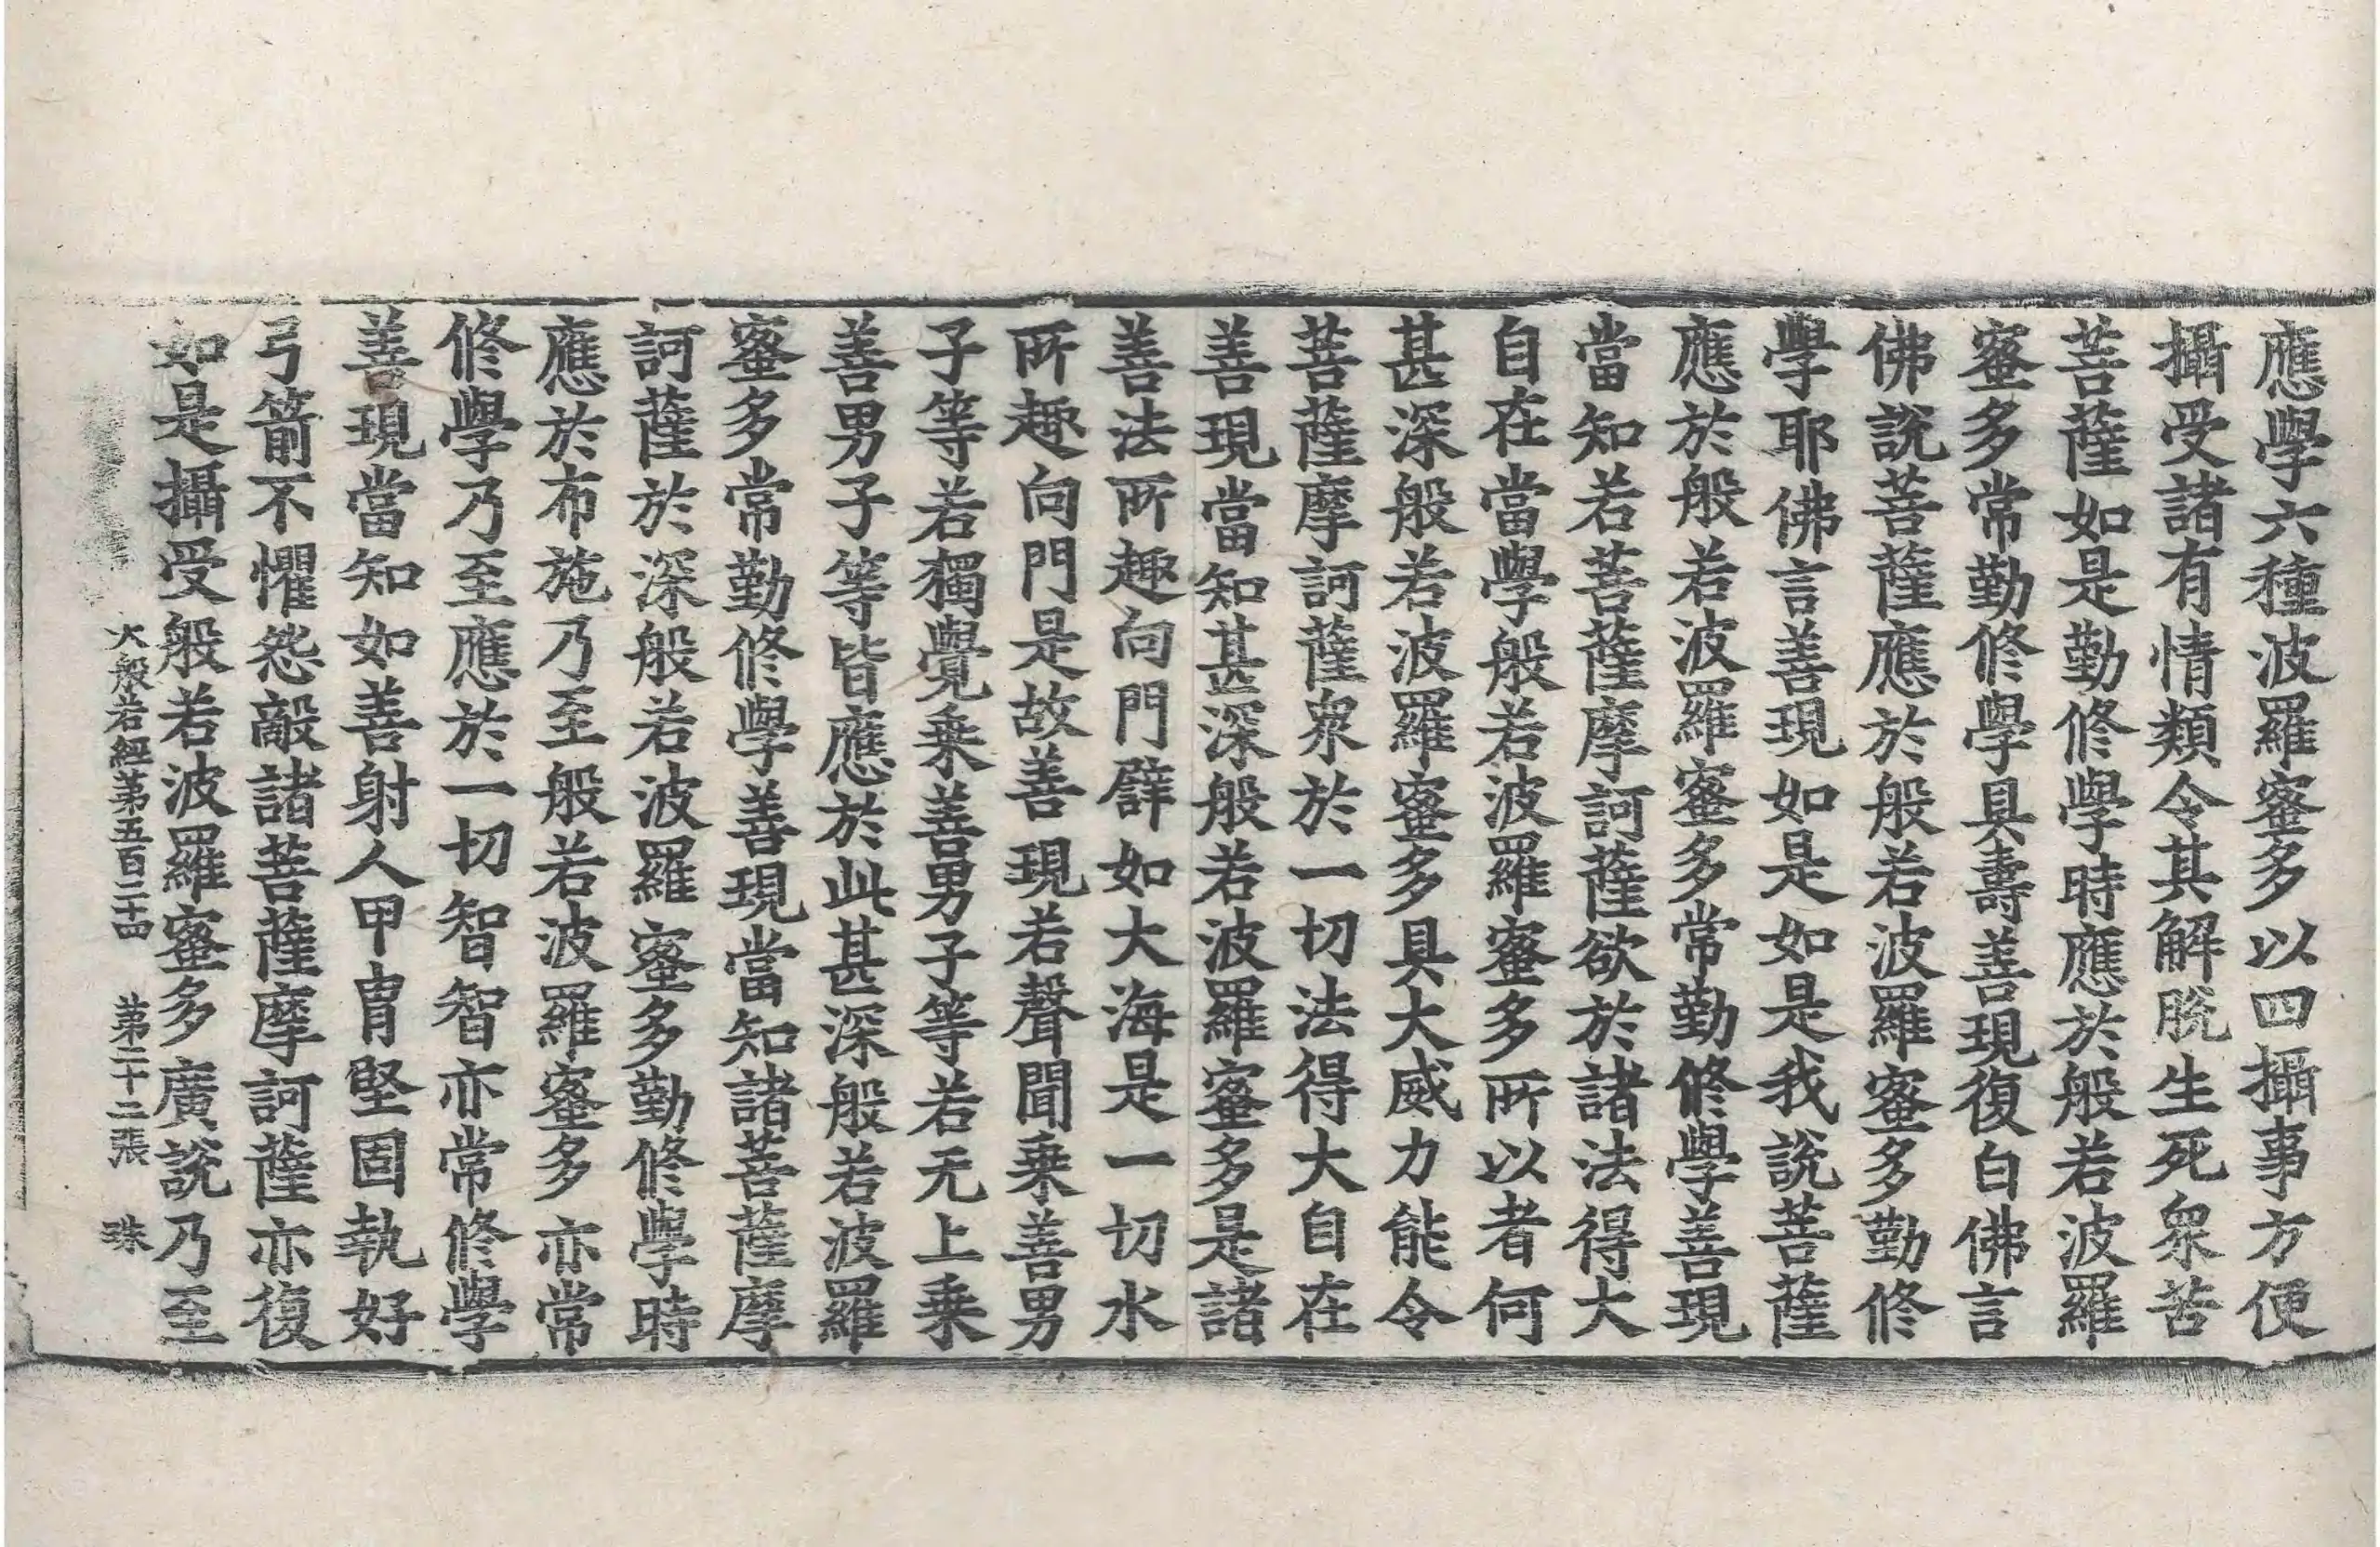 應學六種波羅蜜多以四攝事方便
攝受諸有情類令其解脫生死衆苦
菩薩如是勤修學時應於般若波羅
蜜多常勤修學具壽善現復白佛言
佛說菩薩應於般若波羅蜜多勤修
學耶佛言善現如是如是我說菩薩
應於般若波羅蜜多常勤修學善現
當知若菩薩摩訶薩欲於諸法得大
自在當學般若波羅蜜多所以者何
甚深般若波羅蜜多具大威力能令
菩薩摩訶薩衆於一切法得大自在
善現當知甚深般若波羅蜜多是諸
善法所趣向門譬如大海是一切水
所趣向門是故善現若聲聞乘善男
子等若獨覺乘善男子等若无上乘
善男子等皆應於此甚深般若波羅
蜜多常勤修學善現當知諸菩薩摩
訶薩於深般若波羅蜜多勤修學時
應於布施乃至般若波羅蜜多亦常
修學乃至應於一切智智亦常修學
善現當知如善射人甲冑堅固執好
弓箭不懼怨敵諸菩薩摩訶薩亦復
如是攝受般若波羅蜜多廣說乃至
大般若經第五百二十四　第二十二張　珠